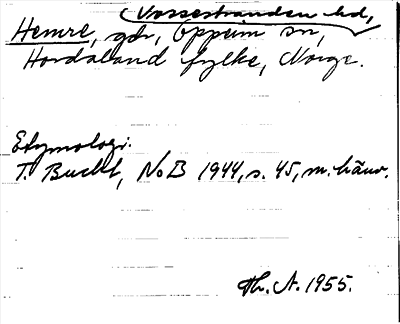 Vossestranden hd,
Hemre, gdr, Oppeim sn,
Hordaland fylke, Norge.
Etymologi.
T. Bucht, NoB 1944, s. 45, m. hänv.
Th. A. 1955.